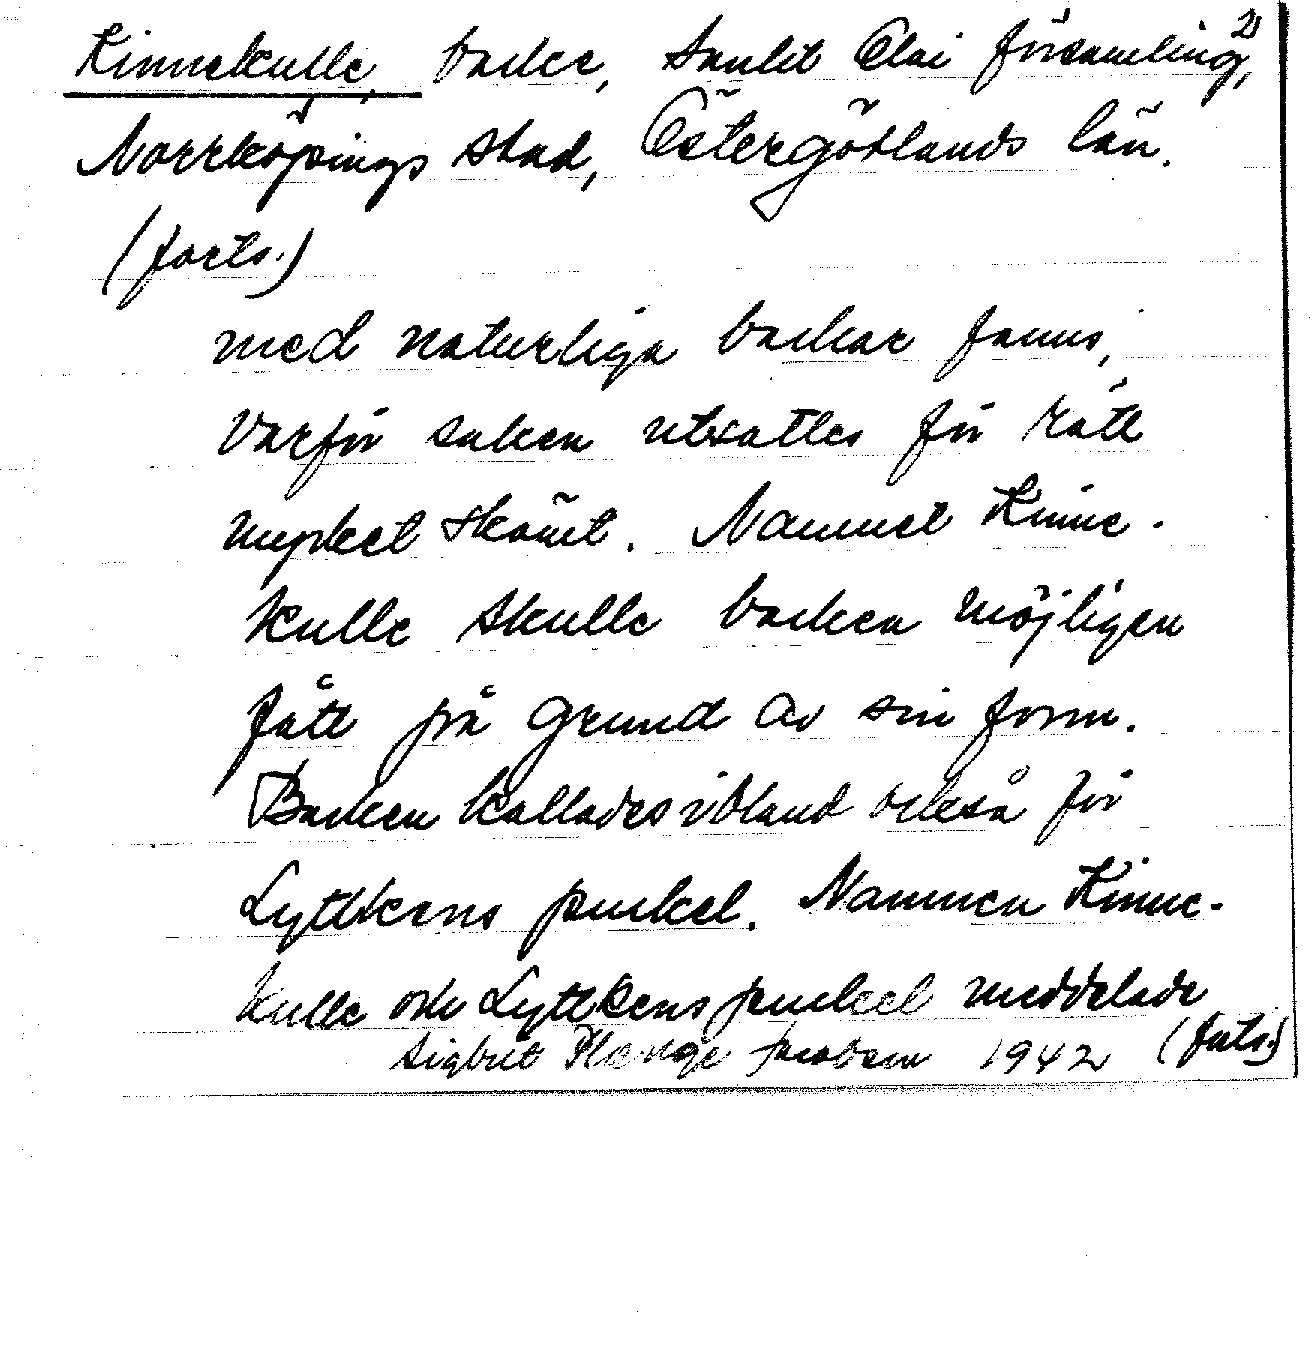 Kinnekulle, backe, Sankt Olai församling, 2)
Norrköpings stad, Östergötlands län.
(forts.)
med naturliga backar fanns,
varför saken utsattes för rätt
mycket skämt. Namnet Kinne-
kulle skulle backen möjligen
fått på grund av sin form.
Backen kallades ibland också för
Lyttkens puckel. Namnen Kinne-
kulle och Lyttkens puckel meddelade
Sigbrit Plænge Jacobson 1942 (forts.)